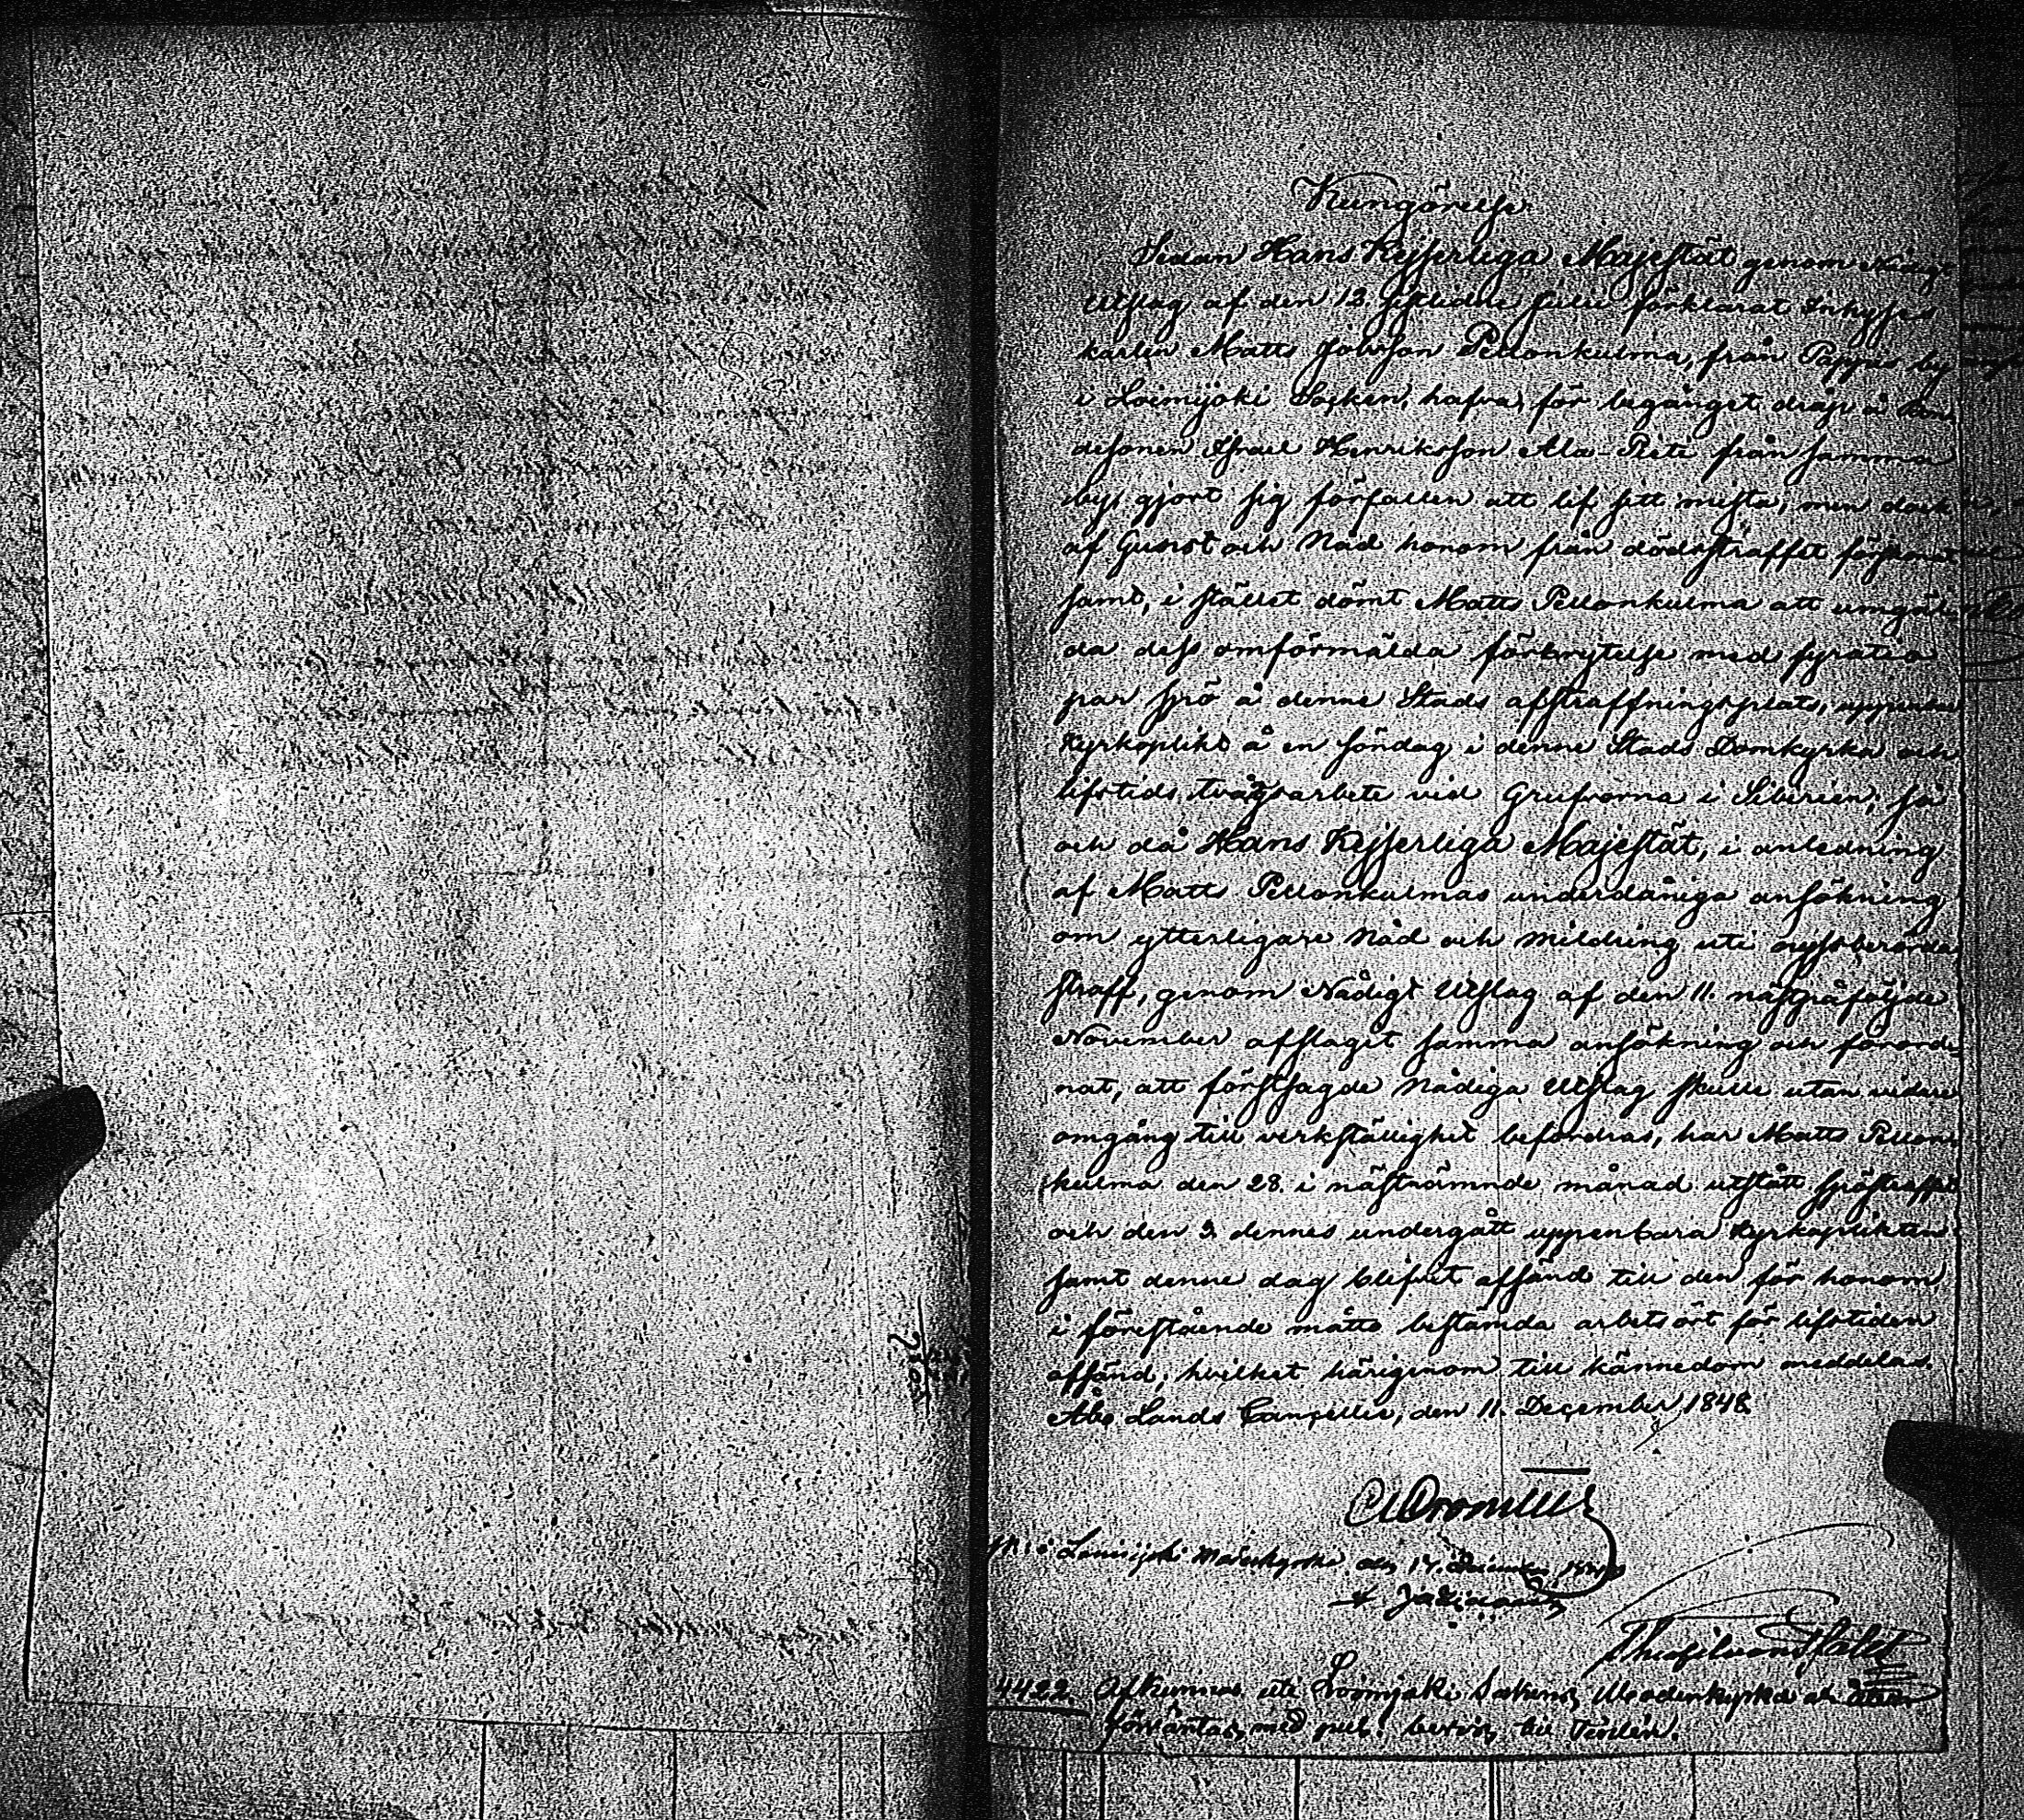 Kungörelse.
Sedan Hans Kejserliga Majestät genom Nådigt
Utslag af den 12 sistlidne Julii förklarat Inhyses
karlen Matts Johnson Pellonkulma, från Pappis by
i Loimijoki Socken, hafva, för begånget dråp å Bon
desonen Israel Henriksson Ala-Pieti från samma
by, gjort sig förfallen att lif sitt mista, men dock
af Gunst och Nåd honom från dödsstraffet förskonat
samt, i stället dömt Matts Pellonkulma att umgäl
da dess omförmälda förbrytelse med fyratio
par spö å denne Stads afstraffningsplats, uppenbar
Kyrkoplikt å en söndag i denne Stads Domkyrka och
lifstids tvångsarbete vid Grufvorna i Sibirien, så
och då Hans Kejserliga Majestät, i anledning
af Matts Pellonkulmas underdåniga ansökning
om ytterligare Nåd och mildring uti nyssberörde
straff, genom Nådigt Utslag af den 11. nästpåföljde
November afslagit samma ansökning och förord-
nat, att förstsagde Nådiga Utslag skulle utan vidare
omgång till verkställighet befordras, har Matts Pellon-
kulma den 28. i nästnämnde månad utstått spöstraffet
och den 3. dennes undergått uppenbara Kyrkoplikten
samt denne dag blifvit afsänd till den för honom
i förestående måtto bestämda arbetsort för lifstiden
afsänd; hvilket härigenom till kännedom meddelas.
Åbo Lands Cancellie, den 11. December 1848.
i Loimijoki Moderkyrka den 17. December 1848
4422. Afkunnas uti Loimijoki Sockens Moderkyrka och
förväntas med pub. bevis till